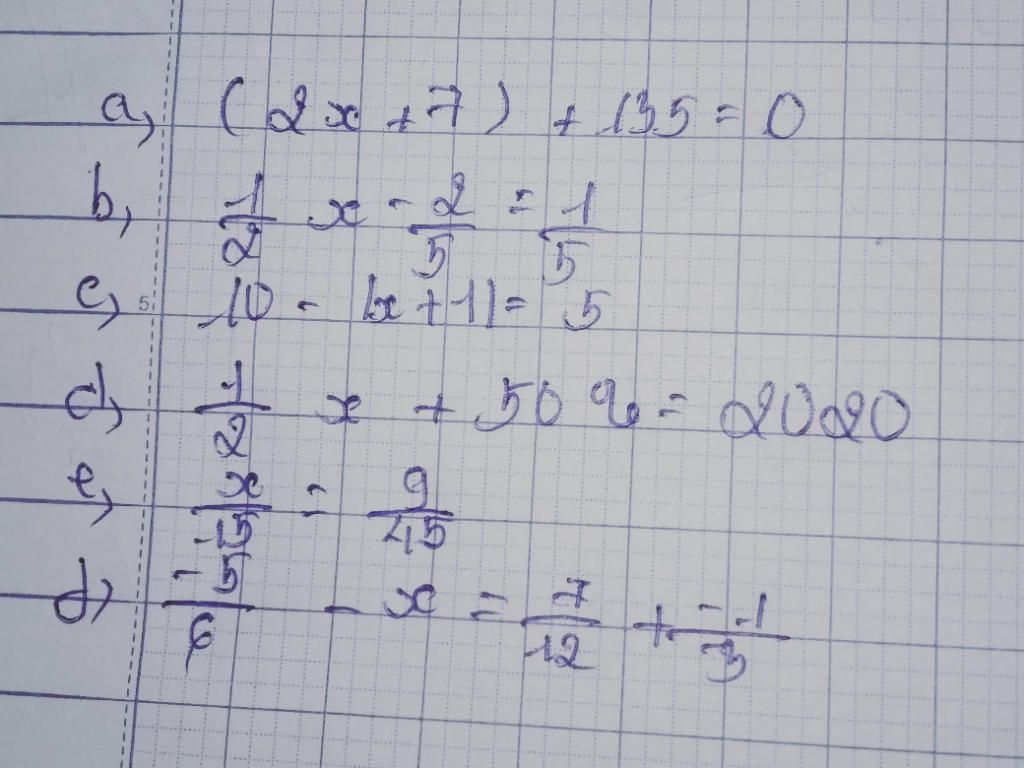 a, (2x + 7) + 135 = 0
b, 1/2 x - 2/5 = 1/5
c) 10 - |x + 1| = 5
d) 1/2 x + 50% = 2020
e) x/15 = 9/45
f) -5/6 - x = 7/12 + -1/3
5